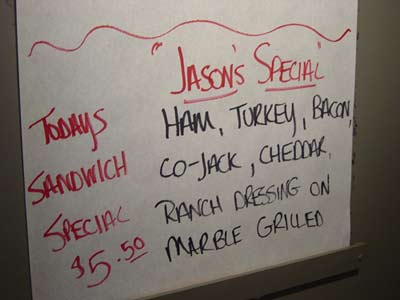 "JASON'S SPECIAL"
TODAYS
SANDWICH
SPECIAL
$5.50
HAM, TURKEY, BACON,
CO-JACK, CHEDDAR,
RANCH DRESSING ON
MARBLE GRILLED